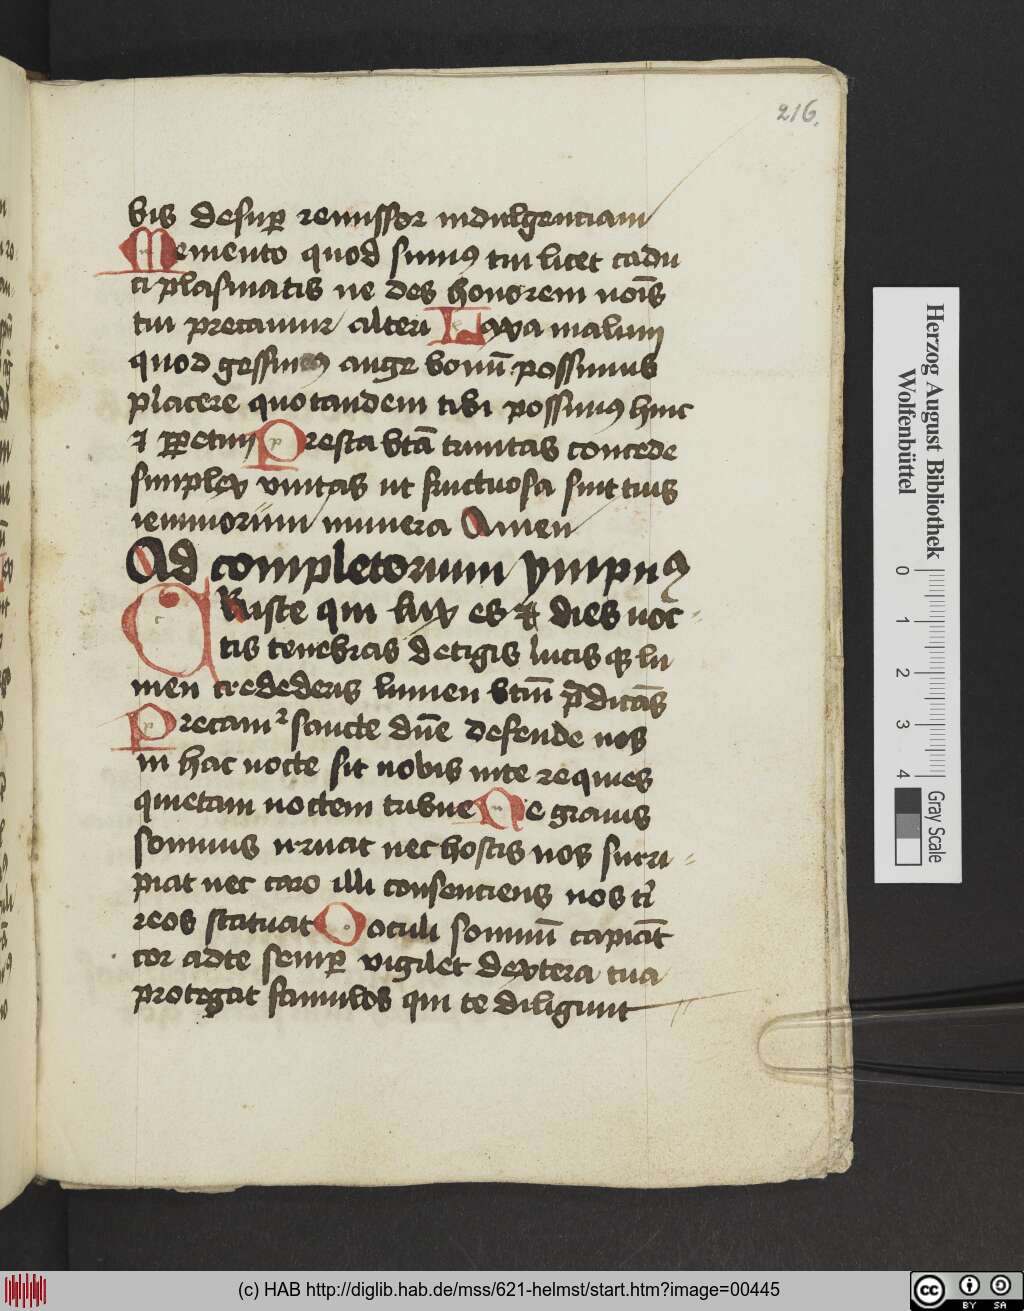 216.
bis desuꝑ remissor indulgenciam
Memento quod sumꝯ tui licet cadu
ci plasmatis ne des honorem noīs
tui precamur alteri Laxa malum
quod gessimꝯ auge bonū possimus
placere quo tandem tibi possimꝯ hinc
⁊ ꝑpetim Presta btā trinitas concede
simplex vnitas ut fructuosa sint tuis
ieiuniorum munera Amen
Ad completorium ympnꝯ
Criste qui lux es ⁊ dies noc⸗
tis tenebras detigis lucis qꝫ lu
men crederis lumen btm̄ p̄dicās
Precamᷣ sancte dn̄e defende nos
in hac nocte sit nobis inte requies
quietam noctem tribue Ne grauis
somnus irruat nec hostis nos surri⸗
piat nec caro illi consenciens nos ti
reos statuat Oculi somnū capiāt
cor adte semꝑ vigilet dextera tua
protegat famulos qui te diligunt
Herzog August Bibliothek
Wolfenbüttel
0 1 2 3 4
Gray Scale
(c) HAB http://diglib.hab.de/mss/621-helmst/start.htm?image=00445
cc BY SA